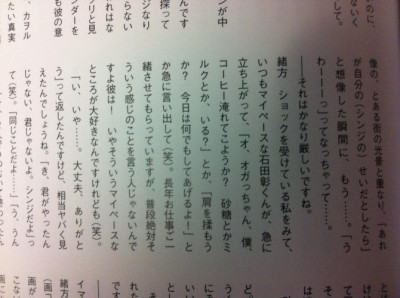 ンが中
んです
探って
ジなり
ンダーを
も彼の意
、カヲル
たい真実
像の、とある街の光景と重なり、「あれ
が自分の(シンジの)せいだとしたら」
と想像した瞬間に、もう……。「う
わーーーっ」てなっちゃって……。
――それはかなり厳しいですね。
緒方　ショックを受けている私をみて、
いつもマイペースな石田彰くんが、急に
立ち上がって、「オ、オガっちゃん、僕、
コーヒー淹れてこようか？　砂糖とかミ
ルクとか、いる？」とか、「肩を揉もう
か？　今日は何でもしてあげるよ！」と
か急に言い出して(笑)。長年お仕事ご一
緒させてもらっていますが、普段絶対そ
ういう感じのことを言う人じゃないんで
すよ彼は！　いやそういうマイペースな
ところが大好きなんですけれども(笑)。
「い、いや……。大丈夫、ありがと
う」って返したんですけど、相当ヤバく見
えたんでしょうね。「き、君がやったん
じゃない、君じゃないよ。シンジだよっ
て(笑)。「同じことだよ……」「う、うん
イマ
緒方
画が